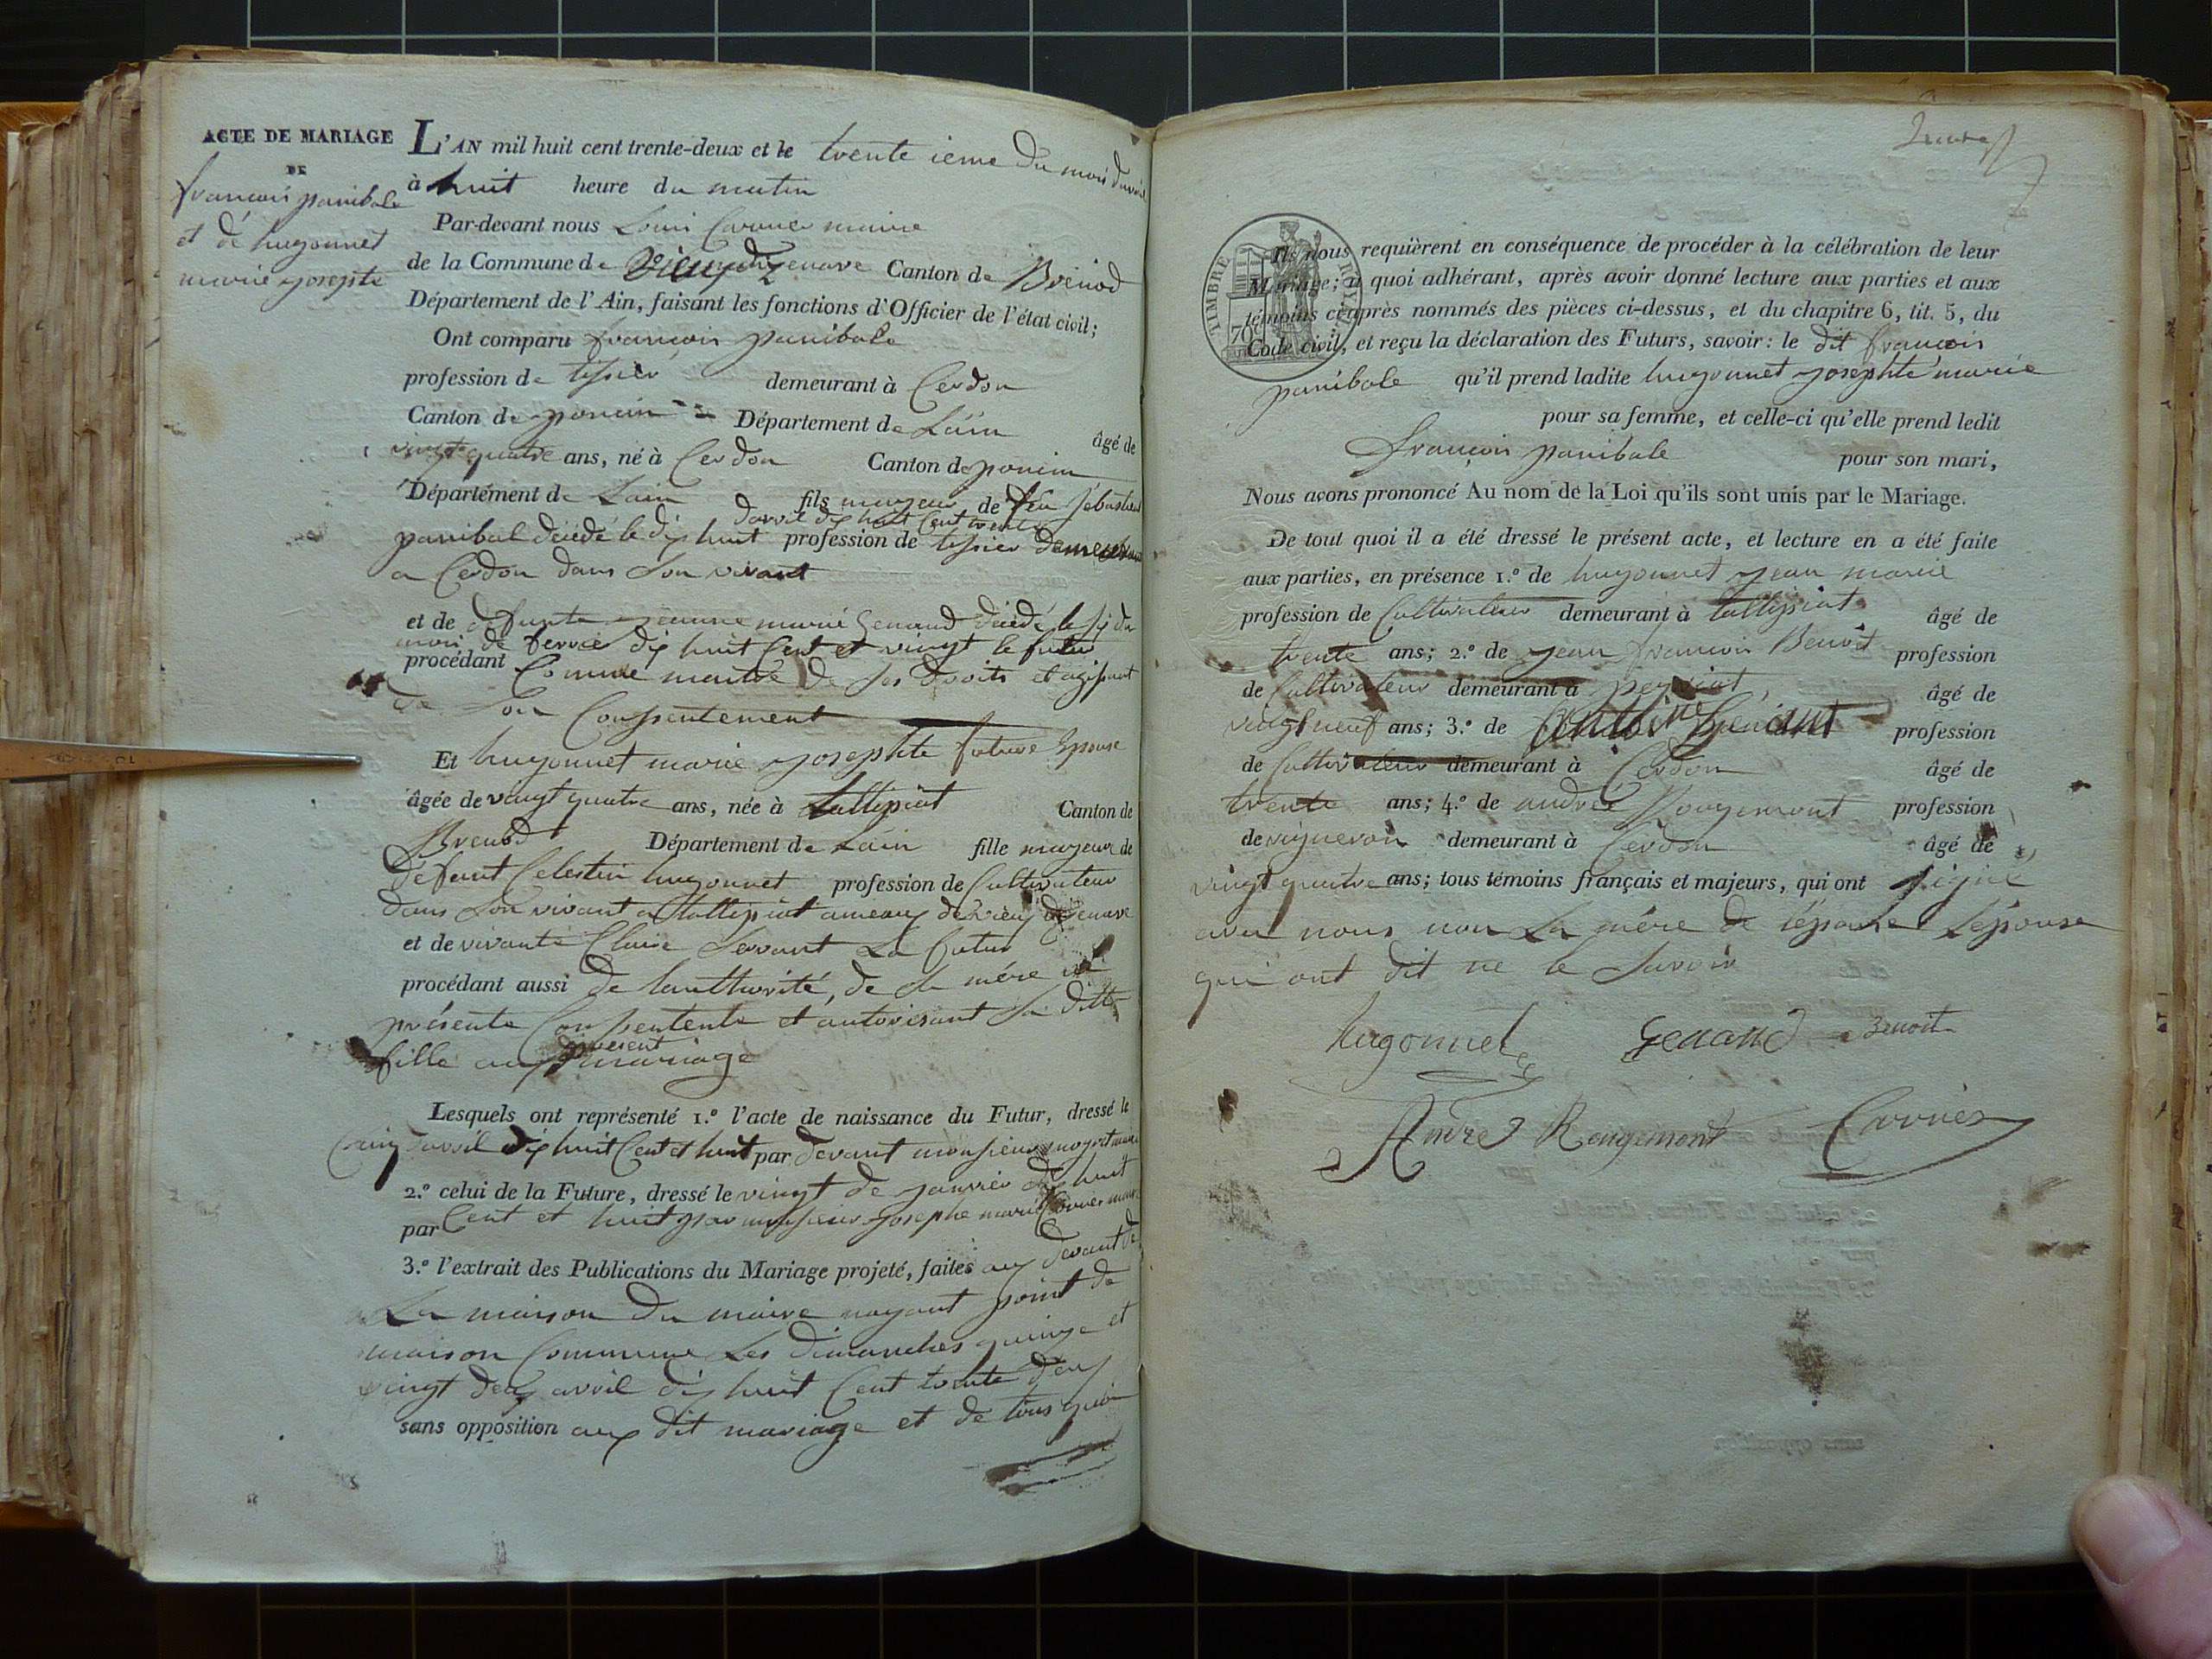 ACTE DE MARIAGE
DE
françois panibale
et de hugonnet
marie josephte
L'AN mil huit cent trente-deux et le trente ieme du mois davril
à huit heure du matin
Par-devant nous Louis maire
de la Commune de Vieux dizenave Canton de Brénod
Département de l'Ain, faisant les fonctions d'Officier de l'état civil;
Ont comparu françois panibale
profession de tissier demeurant à Cerdon
Canton de poncin Département de Lain âgé de
vingt quatre ans, né à Cerdon Canton de poncin
Département de Lain fils mageur de feu sébastien
davril dix huit Cent trente
panibal décédé le dix huit profession de tissier demeurant
a Cerdon dans son vivant
et de défunte jeanne marie Genand décédé le six du
mois de fevrié dix huit Cent et vingt le futur
procédant Comme maitre de ses droits et agissant
de son Consentement
Et hugonnet marie josephte future Epouse
âgée de vingt quatre ans, née à tallissiat Canton de
Brenod Département de Lain fille mageure de
défunt Celestin hugonnet profession de Cultivateur
dans son vivant a tallissiat ameaux de vieux dizenave
et de vivante Claire Savant La future
procédant aussi de lautthorité, de sa mére ici
présente Consentente et autorisant sa ditte
fille aux présent mariage
Lesquels ont représenté 1.º l'acte de naissance du Futur, dressé le
Cinq davril dix huit Cent et huit par devant monsieur maire
2.º celui de la Future, dressé le vingt de janvier dix huit
par Cent et huit par monsieur josephe marie Carrier maire
3.º l'extrait des Publications du Mariage projeté, faites aux devant de
La maison du maire nayant point de
maison Commune Les dimanches quinze et
vingt deux avril dix huit Cent trente deux
sans opposition aux dit mariage et de tous quoi
TIMBRE ROYAL
70
Ils nous requièrent en conséquence de procéder à la célébration de leur
Mariage; à quoi adhérant, après avoir donné lecture aux parties et aux
témoins ci-après nommés des pièces ci-dessus, et du chapitre 6, tit. 5, du
Code civil, et reçu la déclaration des Futurs, savoir: le dit françois
panibale qu'il prend ladite hugonnet josephte marie
pour sa femme, et celle-ci qu'elle prend ledit
françois panibale pour son mari,
Nous avons prononcé Au nom de la Loi qu'ils sont unis par le Mariage.
De tout quoi il a été dressé le présent acte, et lecture en a été faite
aux parties, en présence 1.º de hugonnet jean marie
profession de Cultivateur demeurant à tallissiat âgé de
trente ans; 2.º de jean françois Benoit profession
de Cultivateur demeurant à peyriat, âgé de
vingt neuf ans; 3.º de Antoine Genant profession
de Cultivateur demeurant à Cerdon âgé de
trente ans; 4.º de andré Rougemont profession
de vigneron demeurant à Cerdon âgé de
vingt quatre ans; tous témoins français et majeurs, qui ont signé
avec nous non La mére de lépouse Lépouse
qui ont dit ne le Savoir
hugonnet Genand Benoit
André Rougemont Carrier